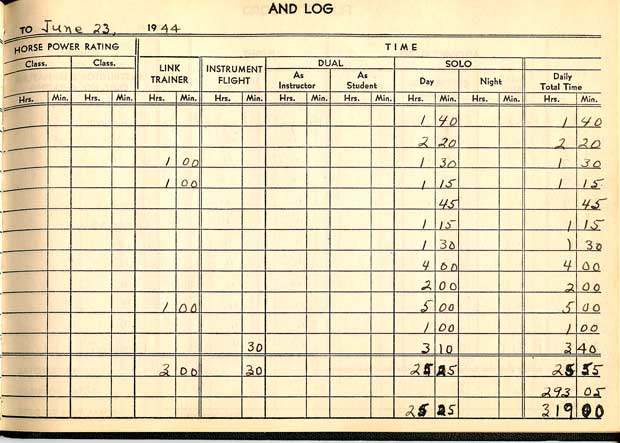 AND LOG
TO June 23, 1944
HORSE POWER RATING TIME
Class. Class. LINK TRAINER INSTRUMENT FLIGHT DUAL SOLO
As Instructor As Student Day Night Daily Total Time
Hrs. Min. Hrs. Min. Hrs. Min. Hrs. Min. Hrs. Min. Hrs. Min. Hrs. Min. Hrs. Min. Hrs. Min.
1 40 1 40
2 20 2 20
1 00 1 30 1 30
1 00 1 15 1 15
45 45
1 15 1 15
1 30 1 30
4 00 4 00
2 00 2 00
1 00 5 00 5 00
1 00 1 00
30 3 10 3 40
3 00 30 25 25 25 55
293 05
25 25 319 00